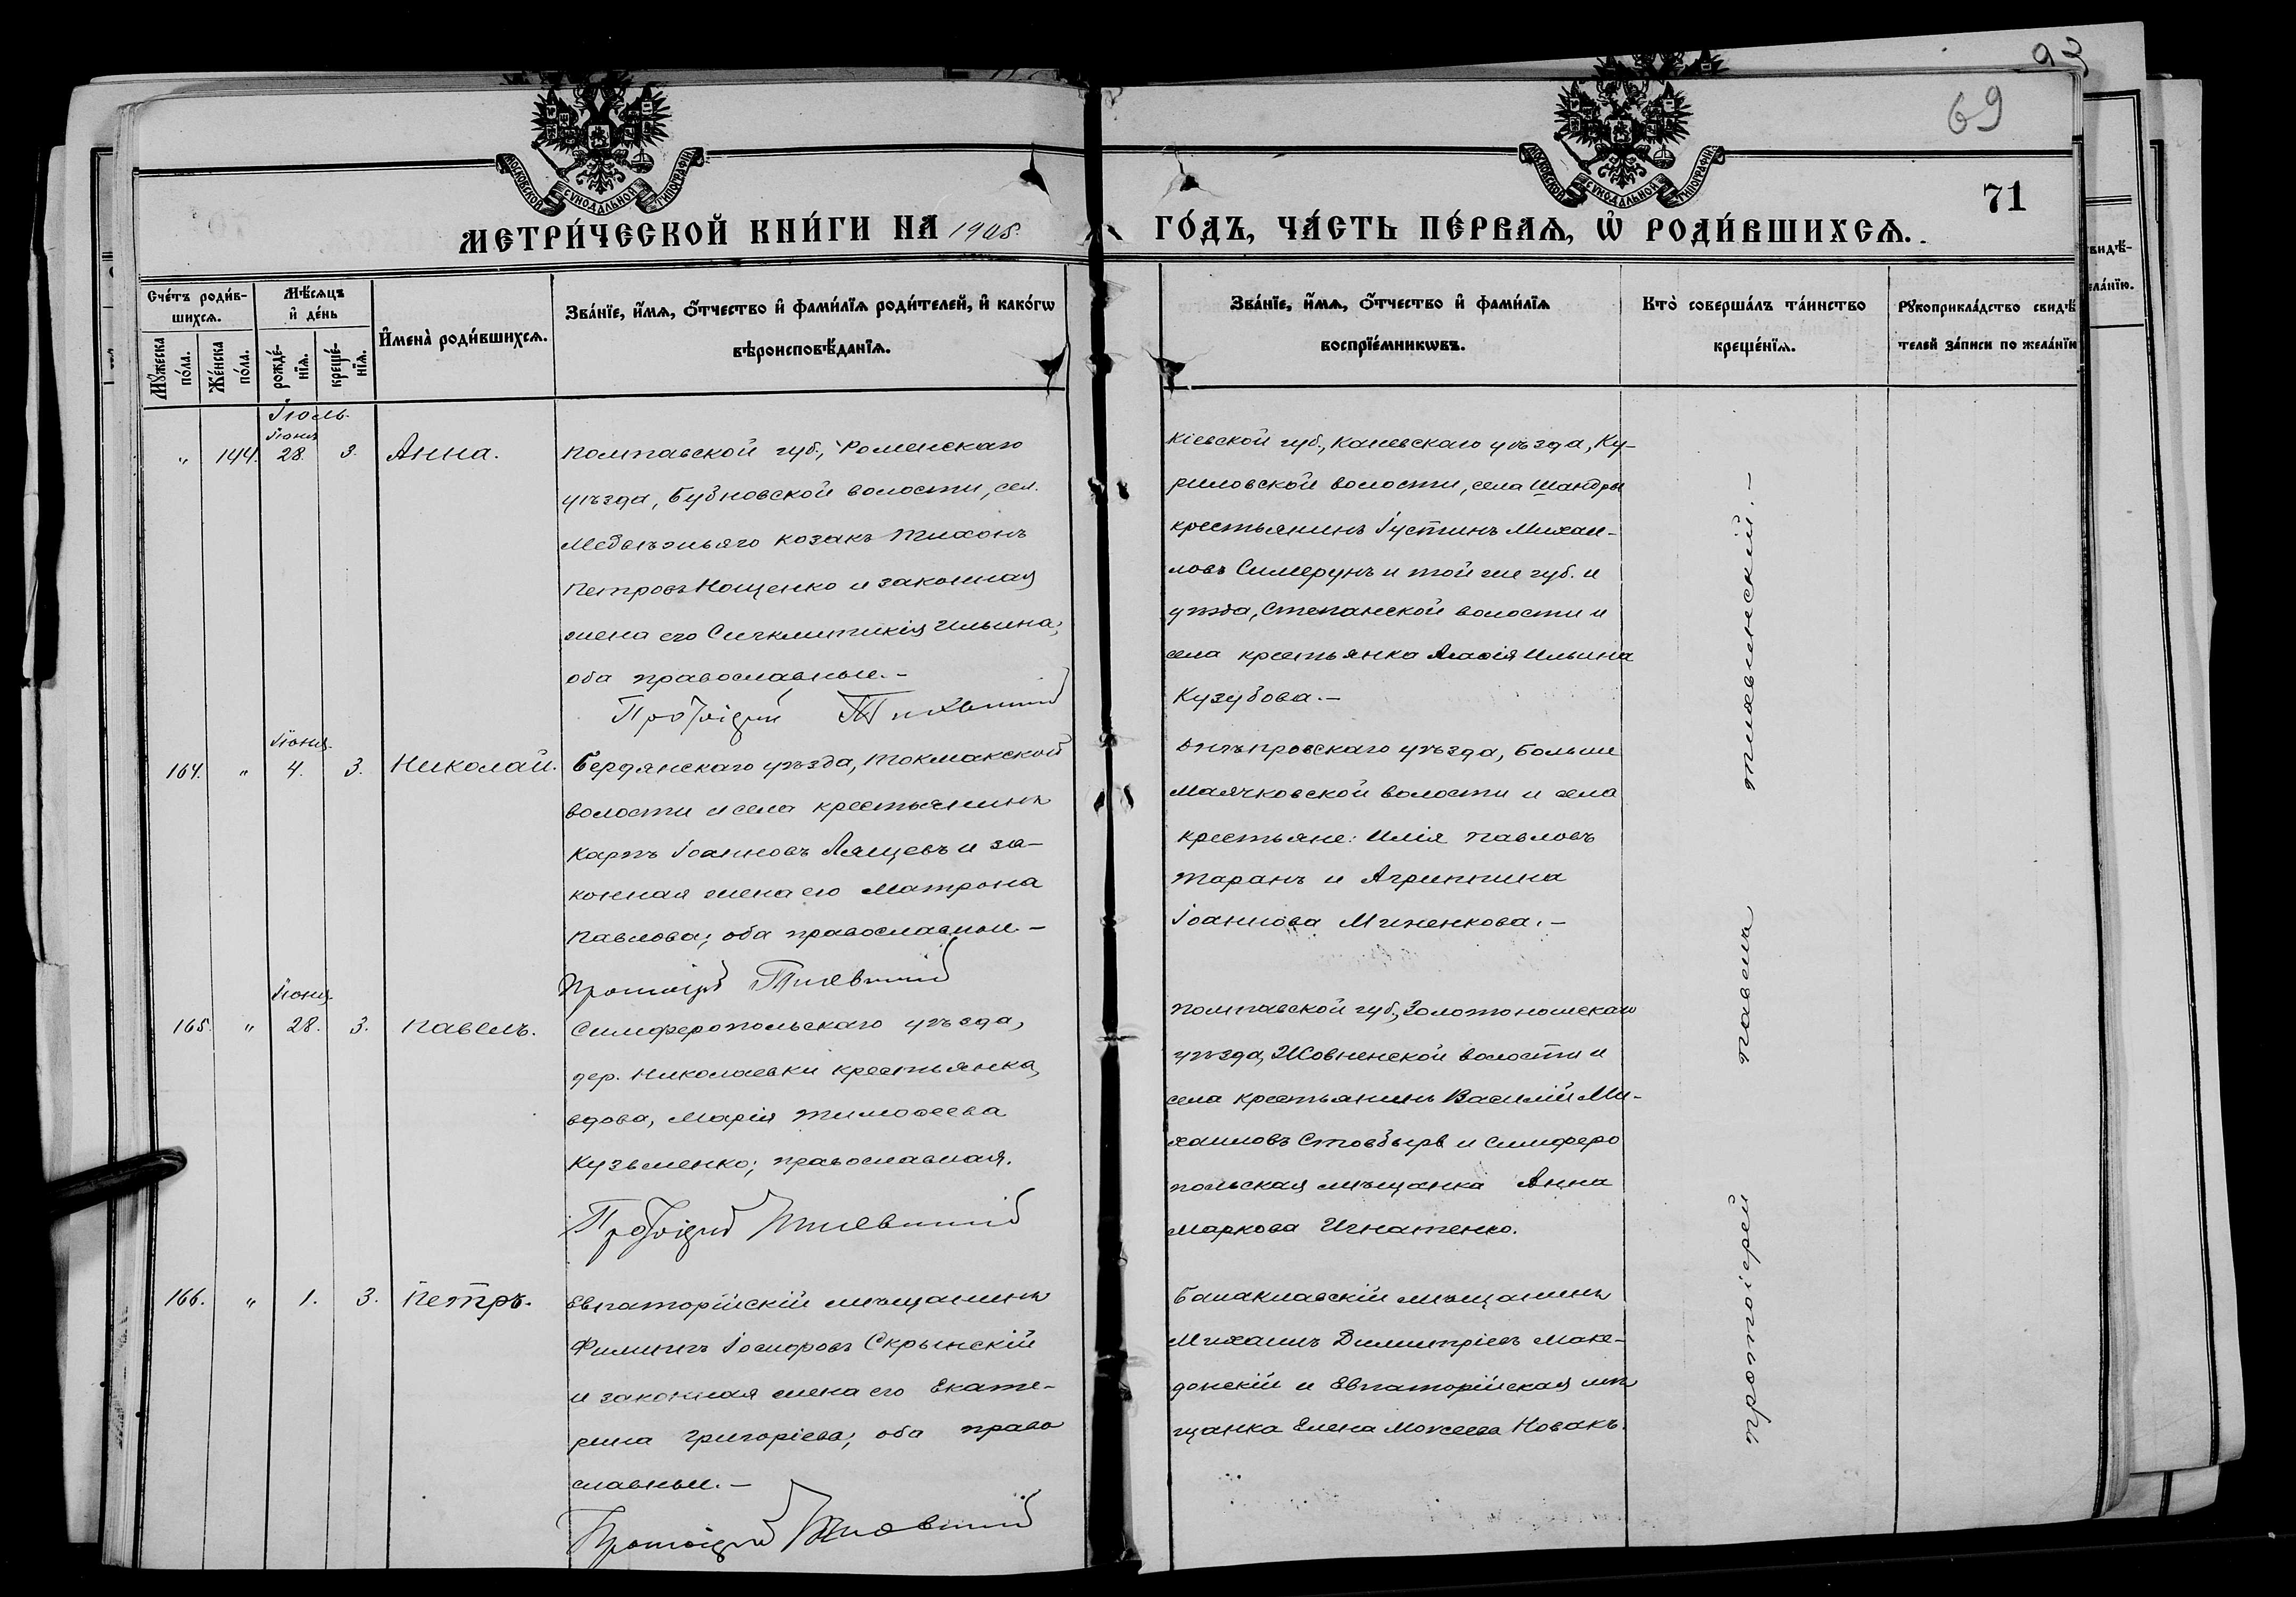 93
69
71
МОСКОВСКОЙ СѴНОДАЛЬНОЙ ТИПОГРАФІИ
МОСКОВСКОЙ СѴНОДАЛЬНОЙ ТИПОГРАФІИ
МЕТРИ́ЧЕСКОЙ КНИ́ГИ НА 1905. ГО́ДЪ, ЧА́СТЬ ПЕ́РВАѦ, Ѡ҆ РОДИ́ВШИХСѦ.
Сче́тъ роди́в-
шихсѧ.
Мꙋ́жеска
по́ла.
Же́нска
по́ла.
Мѣ́сѧцъ
и҆ де́нь
рожде́-
нїѧ.
креще́-
нїѧ.
И҆мена̀ роди́вшихсѧ.
Зва́нїе, и҆́мѧ, ѻ҆́тчество и҆ фами́лїѧ роди́телей, и҆ како́гѡ
вѣроисповѣ́данїѧ.
Зва́нїе, и҆́мѧ, ѻ҆́тчество и҆ фами́лїѧ
воспрїе́мникѡвъ.
Кто̀ соверша́лъ та́инство
креще́нїѧ.
Рꙋкоприкла́дство свидѣ́
телей за́писи по жела́нїю
Іюль.
Іюня
" 144. 28. 3. Анна.
Полтавской губ., Роменскаго
уѣзда, Бубновской волости, сел.
Медвѣжьяго козакъ Тихонъ
Петровъ Нощенко и законная
жена его Синклитикія Ильина;
оба православные.-
Протоіерей Тиѳвинскій
Кіевской губ., Каневскаго уѣзда, Ку-
риловской волости, села Шандры
крестьянинъ Іустинъ Михаи-
ловъ Симерунъ и той же губ. и
уѣзда, Степанской волости и
села крестьянка Агаѳія Ильина
Кузубова.-
Іюня
164. " 4. 3. Николай.
Бердянскаго уѣзда, Токмакской
волости и села крестьянинъ
Карпъ Іоанновъ Лящевъ и за-
конная жена его Матрона
Павлова; оба православные.-
Днѣпровскаго уѣзда, Больше
Маячковской волости и села
крестьяне: Илія Павловъ
Таранъ и Агриппина
Іоаннова Миненкова.-
Іюня
165. " 28. 3. Павелъ.
Симферопольскаго уѣзда,
дер. Николаевки крестьянка,
вдова, Марія Тимоѳеева
Кузьменко; православная.
Полтавской губ., Золотоношскаго
уѣзда, Жовненской волости и
села крестьянинъ Василій Ми-
хаиловъ Стовбырь и симферо
польская мѣщанка Анна
Маркова Игнатенко.
166. " 1. 3. Петръ.
Евпаторійскій мѣщанинъ
Филиппъ Скрынскій
и законная жена его Екате-
рина Григоріева; оба право
славные.-
Балаклавскій мѣщанинъ
Михаилъ Димитріевъ Маке-
донскій и Евпаторійская мѣ
щанка Елена Моѵсеева Новакъ.
протоіерей Павелъ Тиѳвинскій.-